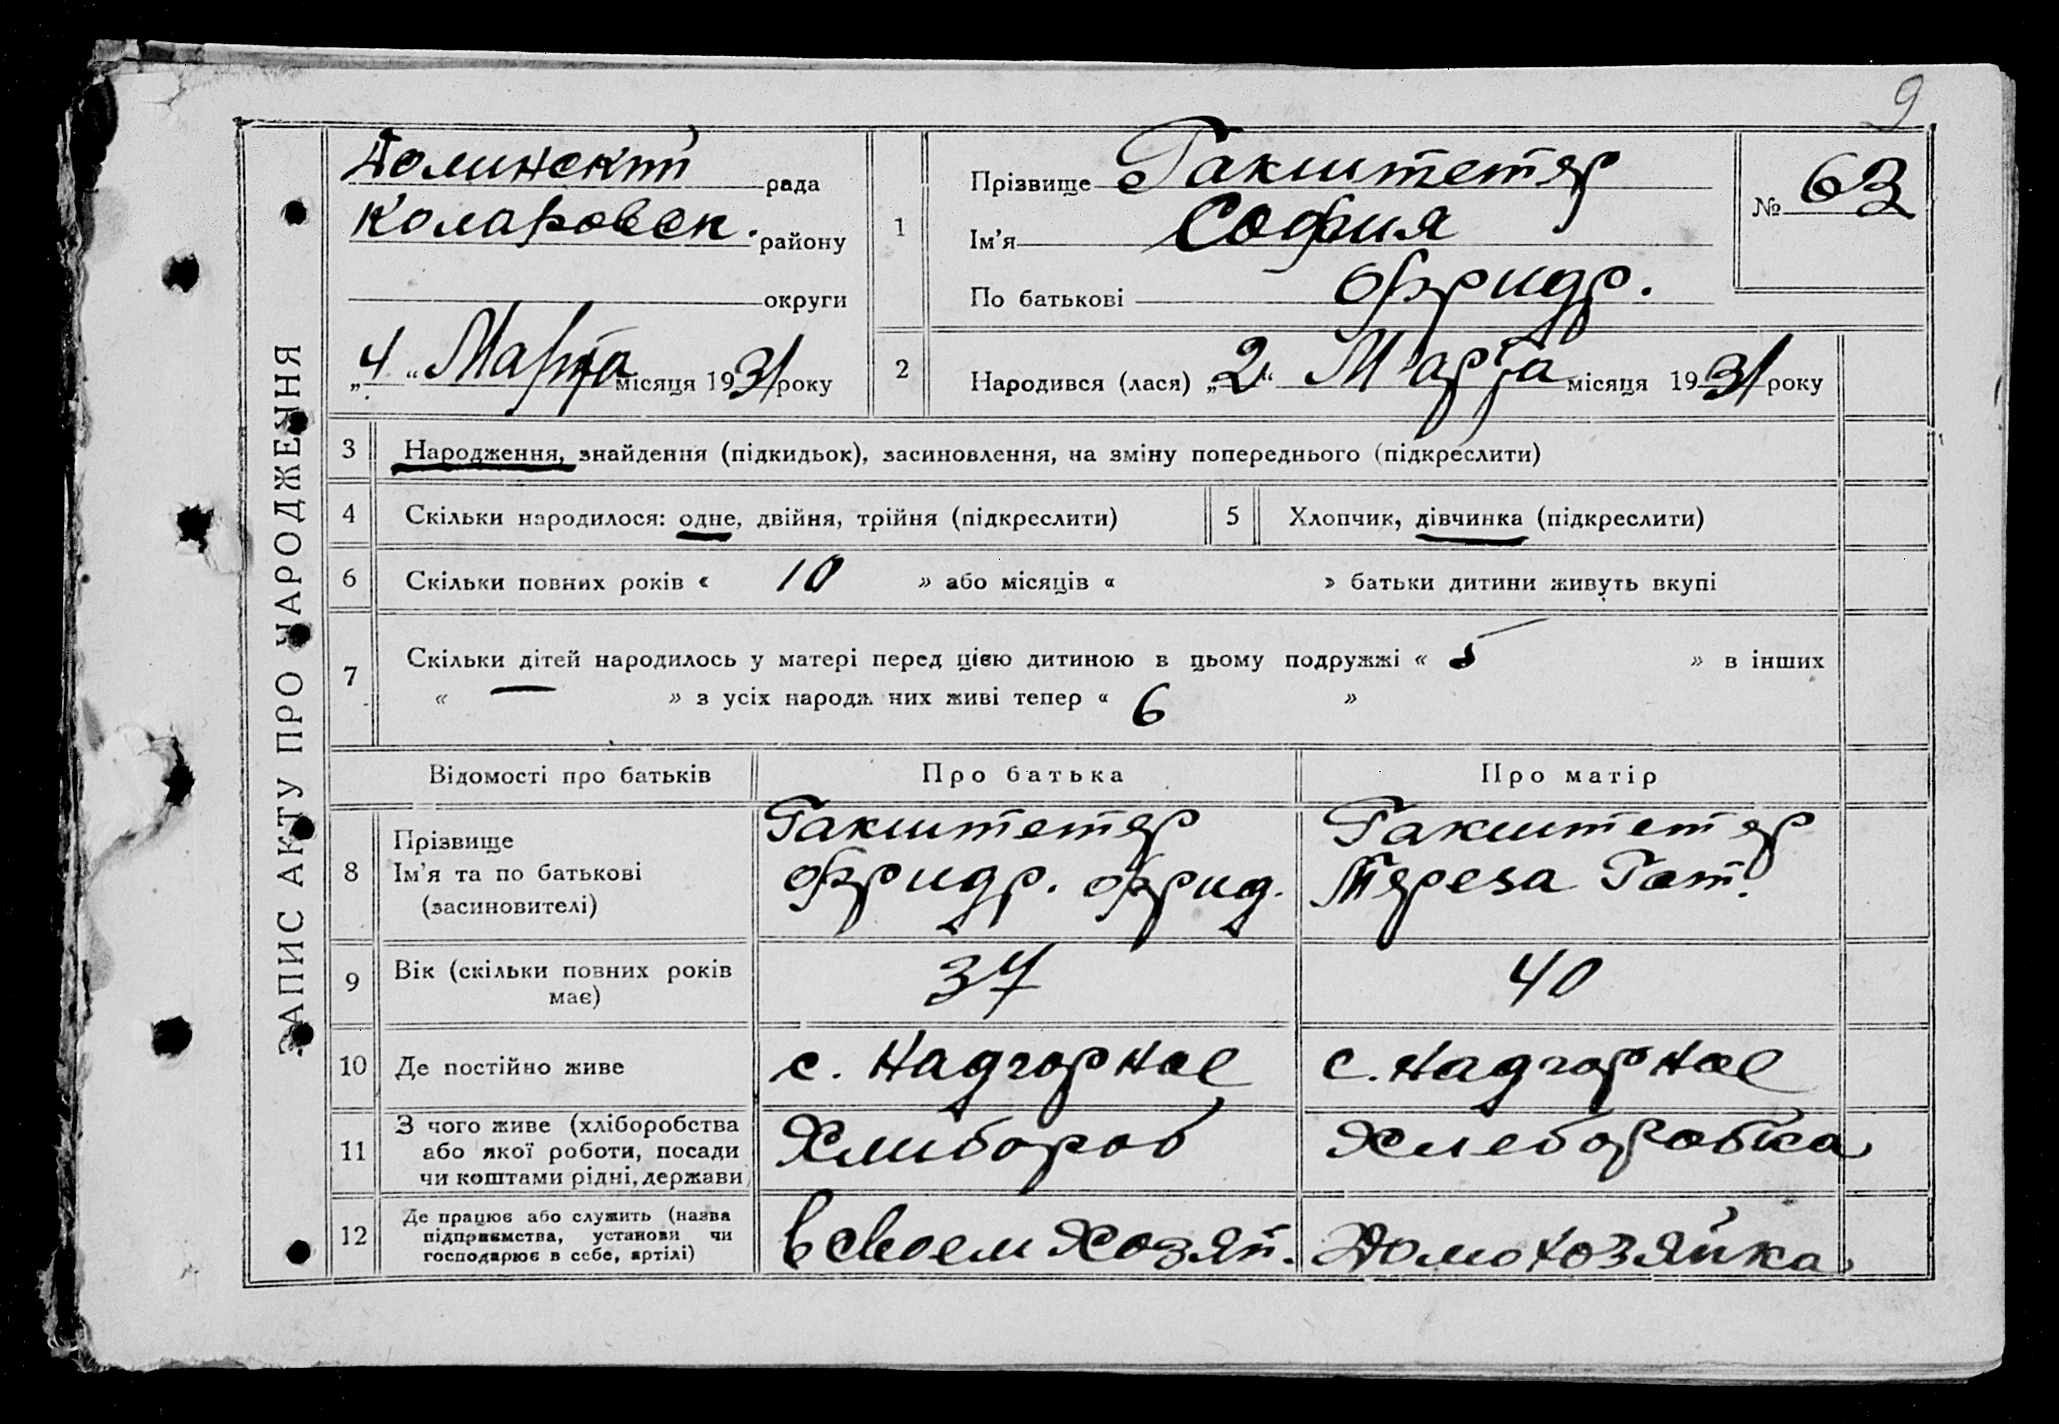 9
ЗАПИС АКТУ ПРО НАРОДЖЕННЯ
Долинский рада
Коларовск. району
округи
„4“ Марта місяця 1931 року
1
Прізвище Гакштетер
Ім’я София
По батькові Фридр.
№ 63
2
Народився (лася) „2“ Марта місяця 1931 року
3 Народження, знайдення (підкидьок), засиновлення, на зміну попереднього (підкреслити)
4 Скільки народилося: одне, двійня, трійня (підкреслити)
5 Хлопчик, дівчинка (підкреслити)
6 Скільки повних років « 10 » або місяців « » батьки дитини живуть вкупі
7 Скільки дітей народилось у матері перед цією дитиною в цьому подружжі « 5 » в інших
« — » з усіх народж них живі тепер « 6 »
Відомості про батьків Про батька Про матір
8
Прізвище
Ім’я та по батькові
(засиновителі)
Гакштетер
Фридр. Фрид.
Гакштетер
Тереза Гот.
9
Вік (скільки повних років
має)
37
40
10 Де постійно живе с. Надгорное с. Надгорное
11
З чого живе (хліборобства
або якої роботи, посади
чи коштами рідні, держави
Хлибороб
Хлеборобка
12
Де працює або служить (назва
підприємства, установи чи
господарює в себе, артілі)
в своем хозяй.
Домохозяйка